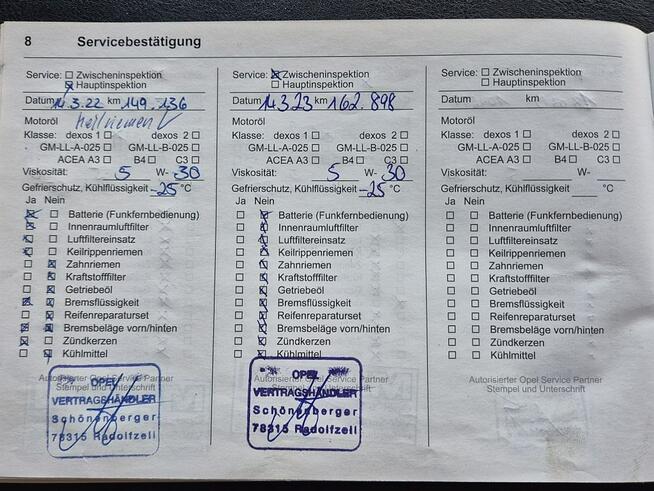 8 Servicebestätigung
Service: Zwischeninspektion
Hauptinspektion
Datum 14.3.22 km 149.136
Motoröl
Klasse: dexos 1 dexos 2
GM-LL-A-025 GM-LL-B-025
ACEA A3 B4 C3
Viskosität: 5 W- 30
Gefrierschutz, Kühlflüssigkeit -25 °C
Ja Nein
Batterie (Funkfernbedienung)
Innenraumluftfilter
Luftfiltereinsatz
Keilrippenriemen
Zahnriemen
Kraftstofffilter
Getriebeöl
Bremsflüssigkeit
Reifenreparaturset
Bremsbeläge vorn/hinten
Zündkerzen
Kühlmittel
Autorisierter Opel Service Partner
Stempel und Unterschrift
OPEL
VERTRAGSHÄNDLER
Schönenberger
78315 Radolfzell
Service: Zwischeninspektion
Hauptinspektion
Datum 14.3.23 km 162.898
Motoröl
Klasse: dexos 1 dexos 2
GM-LL-A-025 GM-LL-B-025
ACEA A3 B4 C3
Viskosität: 5 W- 30
Gefrierschutz, Kühlflüssigkeit -25 °C
Ja Nein
Batterie (Funkfernbedienung)
Innenraumluftfilter
Luftfiltereinsatz
Keilrippenriemen
Zahnriemen
Kraftstofffilter
Getriebeöl
Bremsflüssigkeit
Reifenreparaturset
Bremsbeläge vorn/hinten
Zündkerzen
Kühlmittel
Autorisierter Opel Service Partner
Stempel und Unterschrift
OPEL
VERTRAGSHÄNDLER
Schönenberger
78315 Radolfzell
Service: Zwischeninspektion
Hauptinspektion
Datum km
Motoröl
Klasse: dexos 1 dexos 2
GM-LL-A-025 GM-LL-B-025
ACEA A3 B4 C3
Viskosität: W-
Gefrierschutz, Kühlflüssigkeit °C
Ja Nein
Batterie (Funkfernbedienung)
Innenraumluftfilter
Luftfiltereinsatz
Keilrippenriemen
Zahnriemen
Kraftstofffilter
Getriebeöl
Bremsflüssigkeit
Reifenreparaturset
Bremsbeläge vorn/hinten
Zündkerzen
Kühlmittel
Autorisierter Opel Service Partner
Stempel und Unterschrift